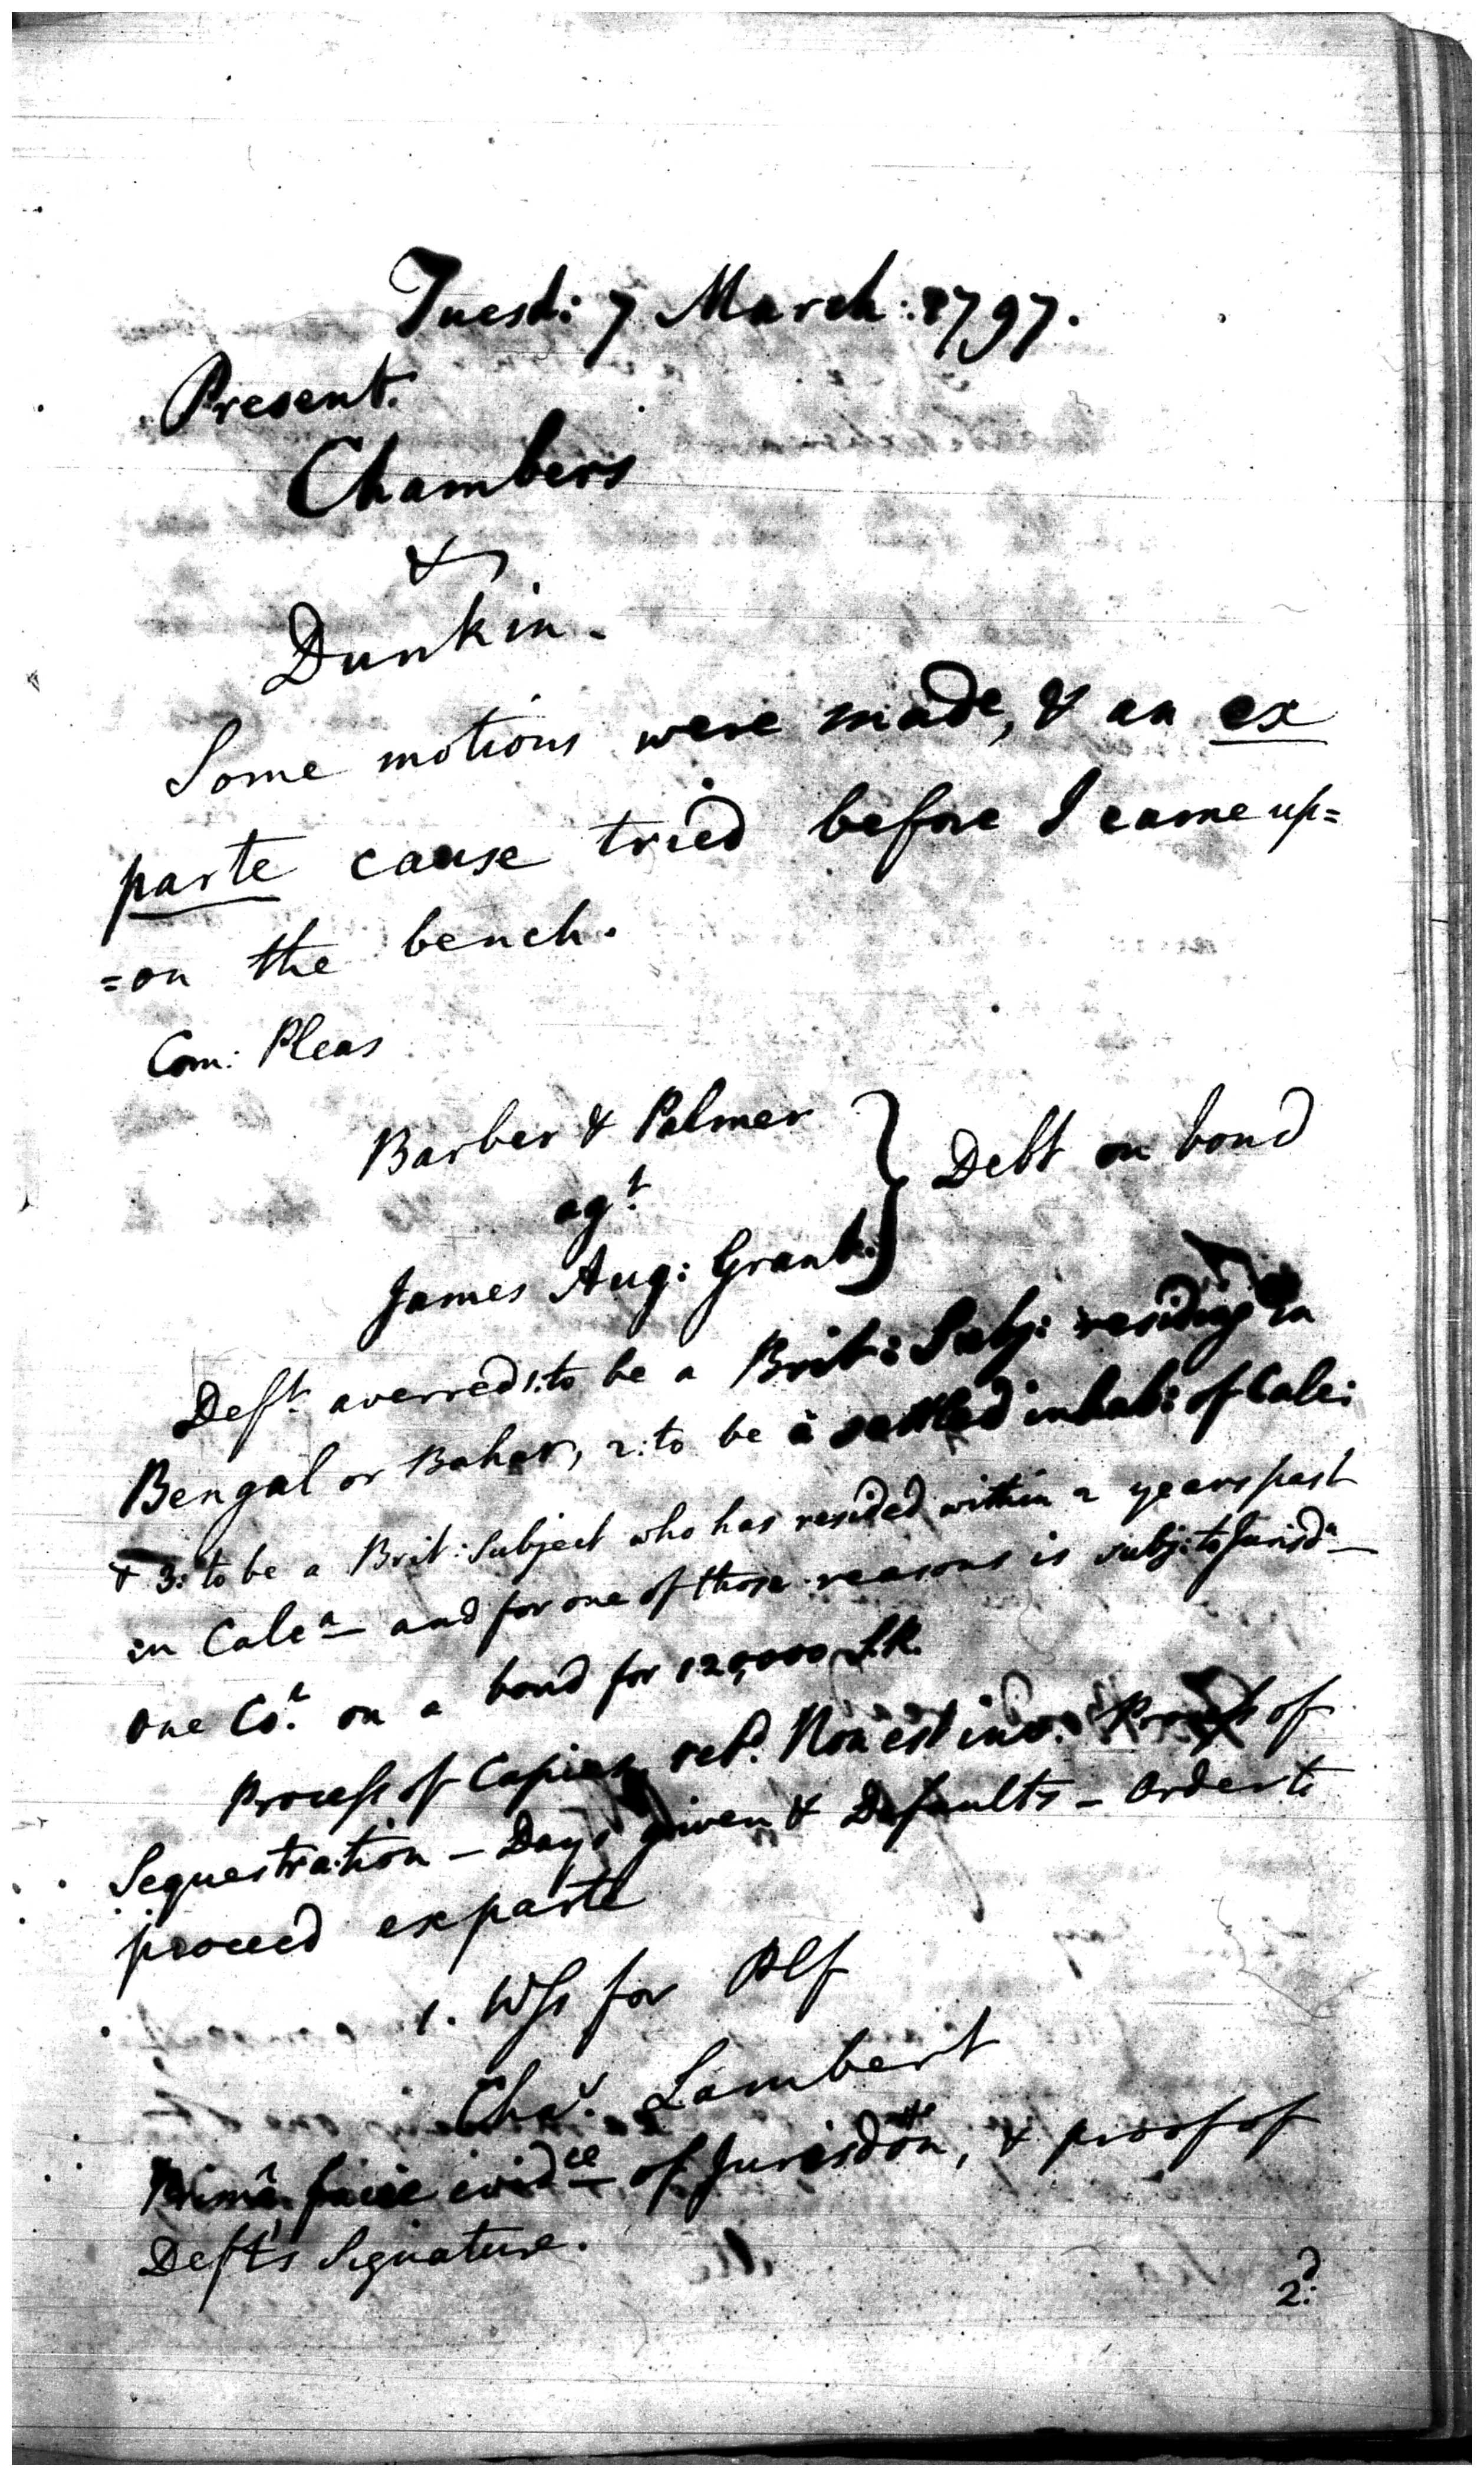 Tuesd: 7 March: 1797.
Present.
Chambers
&
Dunkin.
Some motions were made, & an ex
parte cause tried before I came up=
=on the bench.
Com: Pleas
Barber & Palmer
agt.
James Aug: Grant.
} Debt on bond
Deft. averred 1: to be a Brit: Subj: residing in
Bengal or Bahar, 2: to be a settled inhab: of Calc:
& 3: to be a Brit: Subject who has resided within 2 years past
in Calca and for one of those reasons is subj: to Jurisdn
One Cot. on a bond for 120,000 S.R.
Process of Capias retd. Non est inv. Process of
Sequestration - Days given & Defaults - Order to
proceed exparte
1. Wss for Plf
Chas. Lambert
Primâ facie evidce of Jurisdon, & proof of
Deft's Signature.
2d.